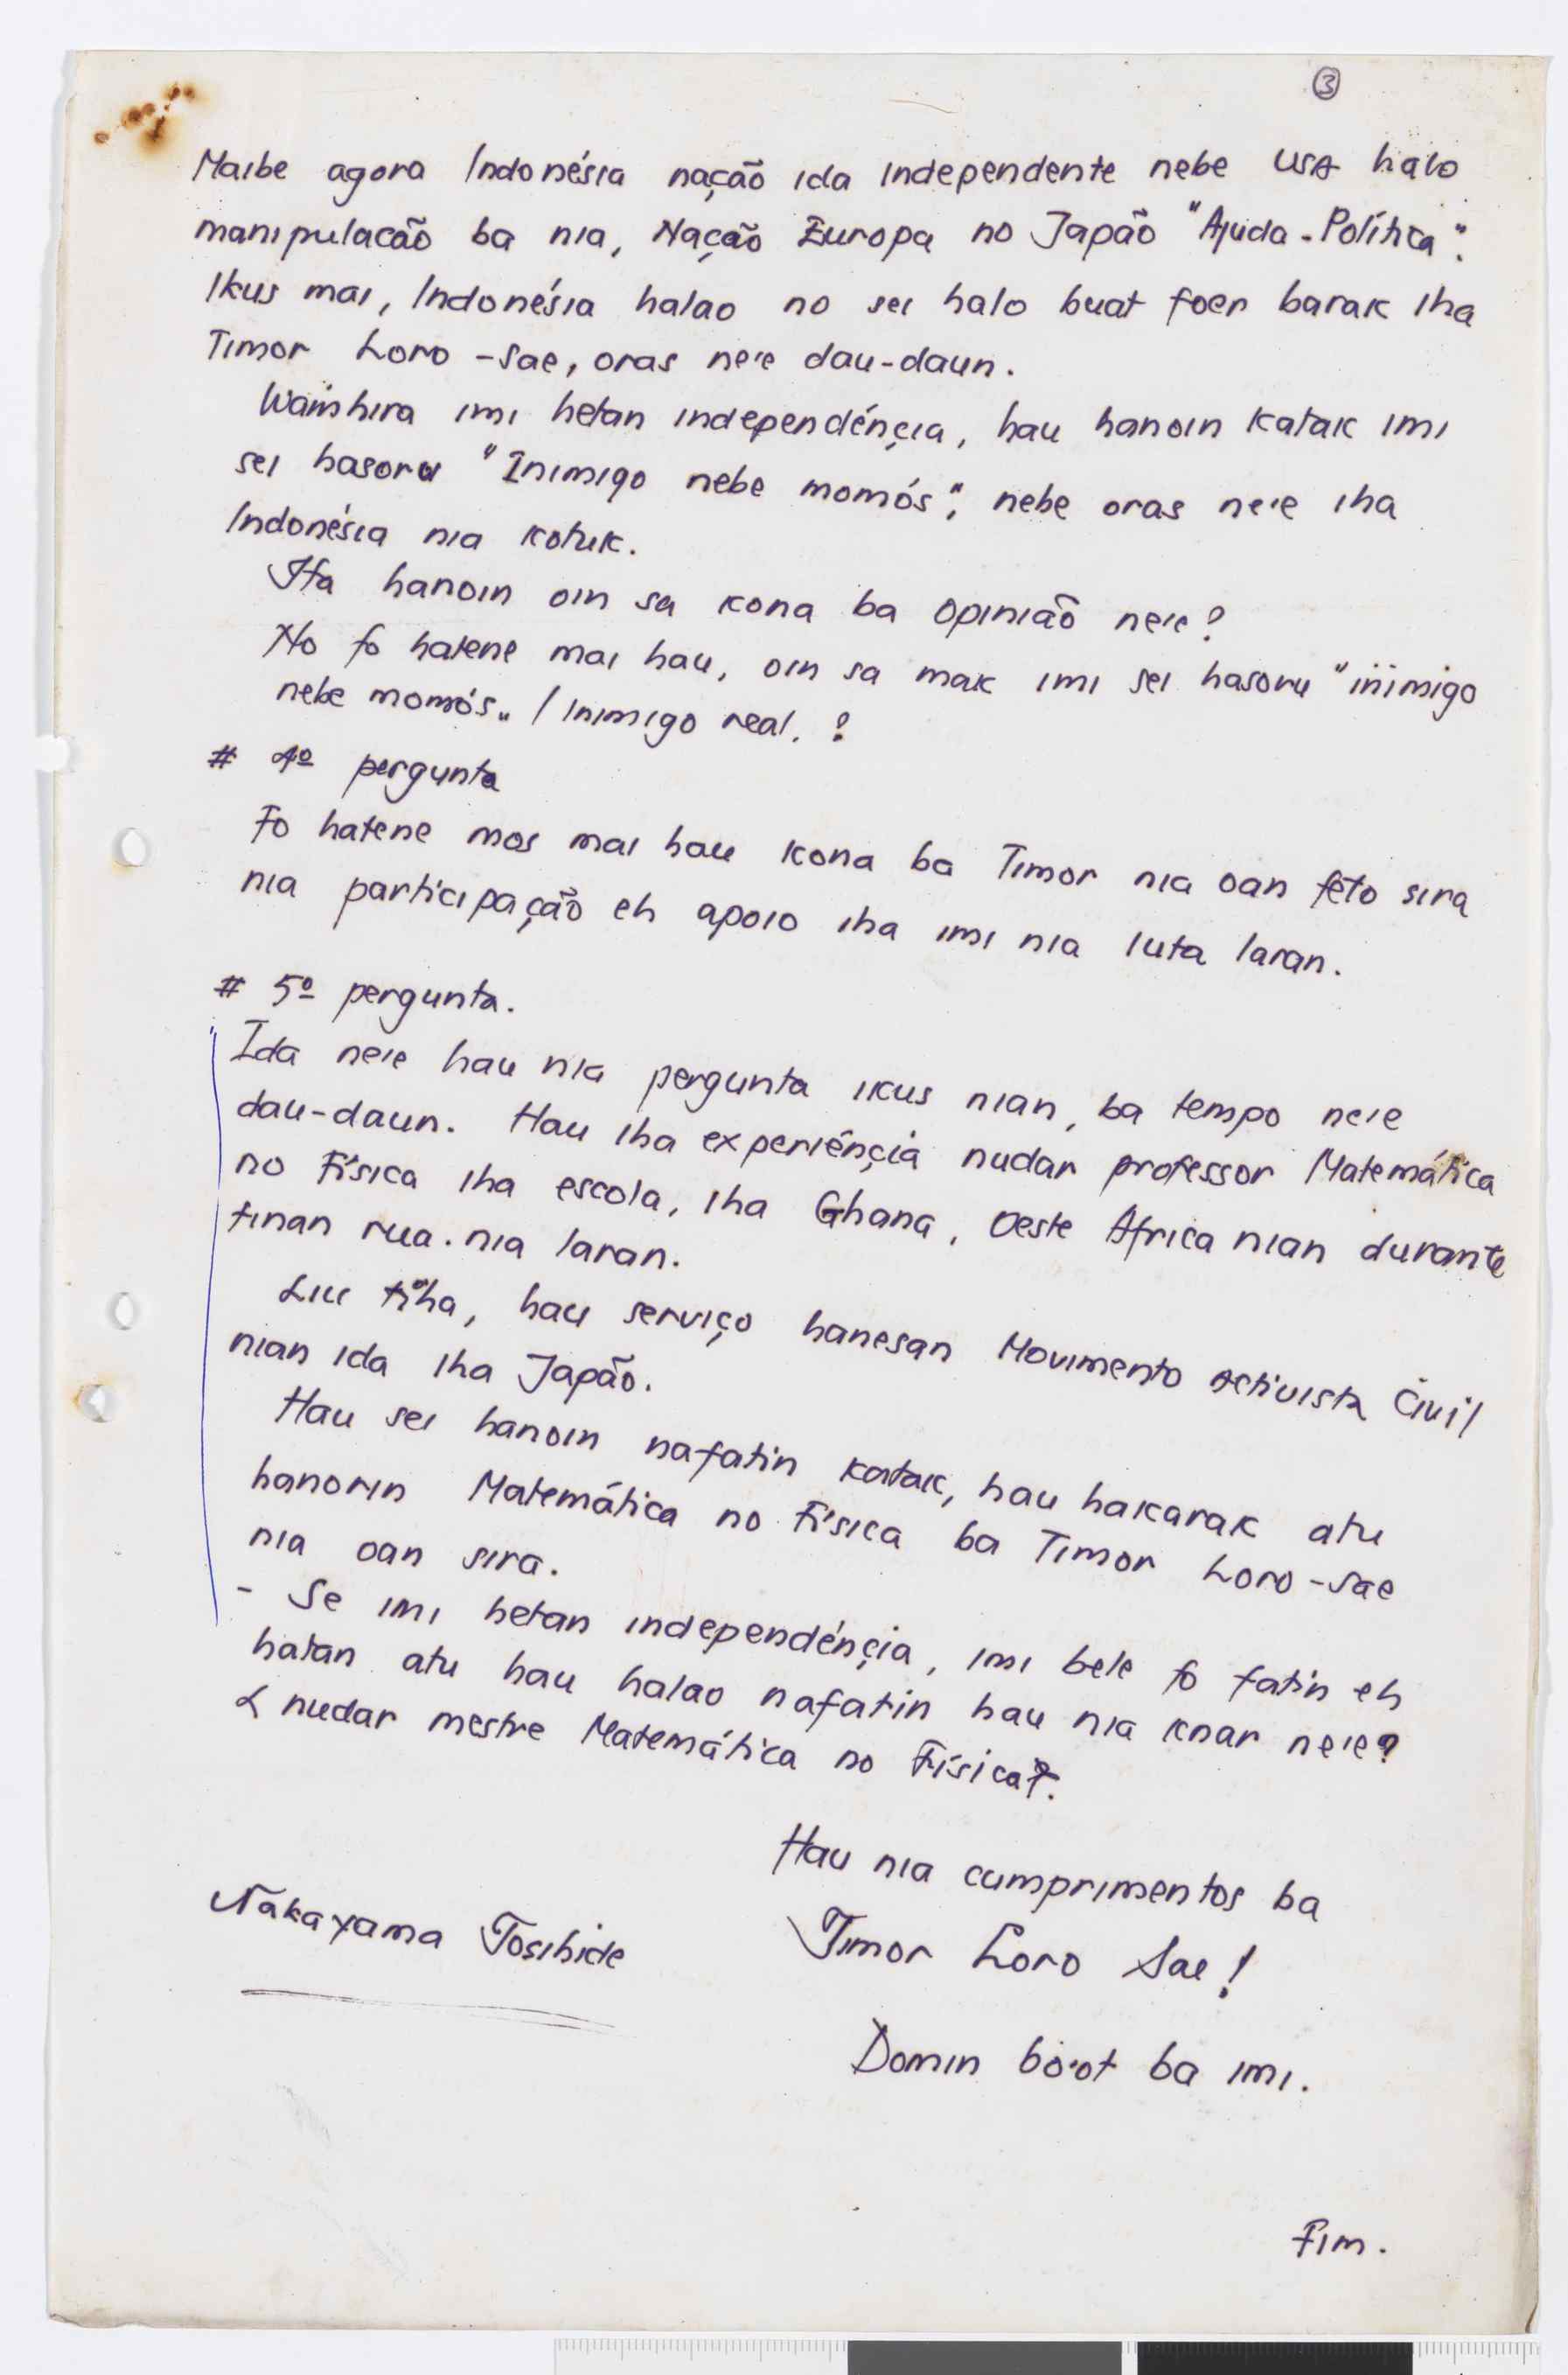 ③
Maibe agora Indonésia nação ida independente nebe USA halo
manipulacão ba nia, Nação Europa no Japão "Ajuda-Política".
Ikus mai, Indonésia halao no sei halo buat foer barak iha
Timor Loro-Sae, oras ne'e dau-daun.
Wainhira imi hetan independénçia, hau hanoin katak imi
sei hasoru "Inimigo nebe momós", nebe oras ne'e iha
Indonésia nia kotuk.
Ita hanoin oin sa kona ba opinião ne'e?
No fo hatene mai hau, oin sa mak imi sei hasoru "inimigo
nebe momós" / Inimigo real. ?
# 4º pergunta
Fo hatene mos mai hau kona ba Timor nia oan feto sira
nia participação eh apoio iha imi nia luta laran.
# 5º pergunta.
Ida ne'e hau nia pergunta ikus nian, ba tempo ne'e
dau-daun. Hau iha experiénçia nudar professor Matemática
no Física iha escola, iha Ghana, Oeste Africa nian durante
tinan rua. nia laran.
Liu tiha, hau serviço hanesan Movimento Activista Civil
nian ida iha Japão.
Hau sei hanoin nafatin katak, hau hakarak atu
hanorin Matemática no Física ba Timor Loro-Sae
nia oan sira.
- Se imi hetan independénçia, imi bele fo fatin eh
hatan atu hau halao nafatin hau nia knar ne'e?
L nudar mestre Matemática no Física?.
Hau nia cumprimentos ba
Nakayama Tosihide
Timor Loro Sae!
Domin bo'ot ba imi.
Fim.